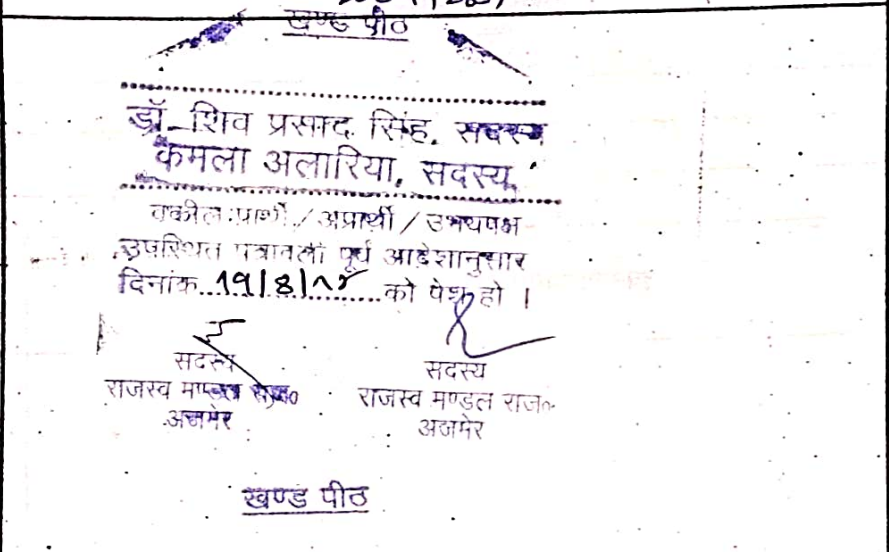 खण्ड पीठ
डॉ. शिव प्रसाद सिंह, सदस्य
कमला अलारिया, सदस्य
वकील प्रार्थी / अप्रार्थी / उभयपक्ष
उपस्थित पत्रावली पूर्व आदेशानुसार
दिनांक 19/8/ को पेश हो ।
सदस्य सदस्य
राजस्व मण्डल राज० राजस्व मण्डल राज०
अजमेर अजमेर
खण्ड पीठ